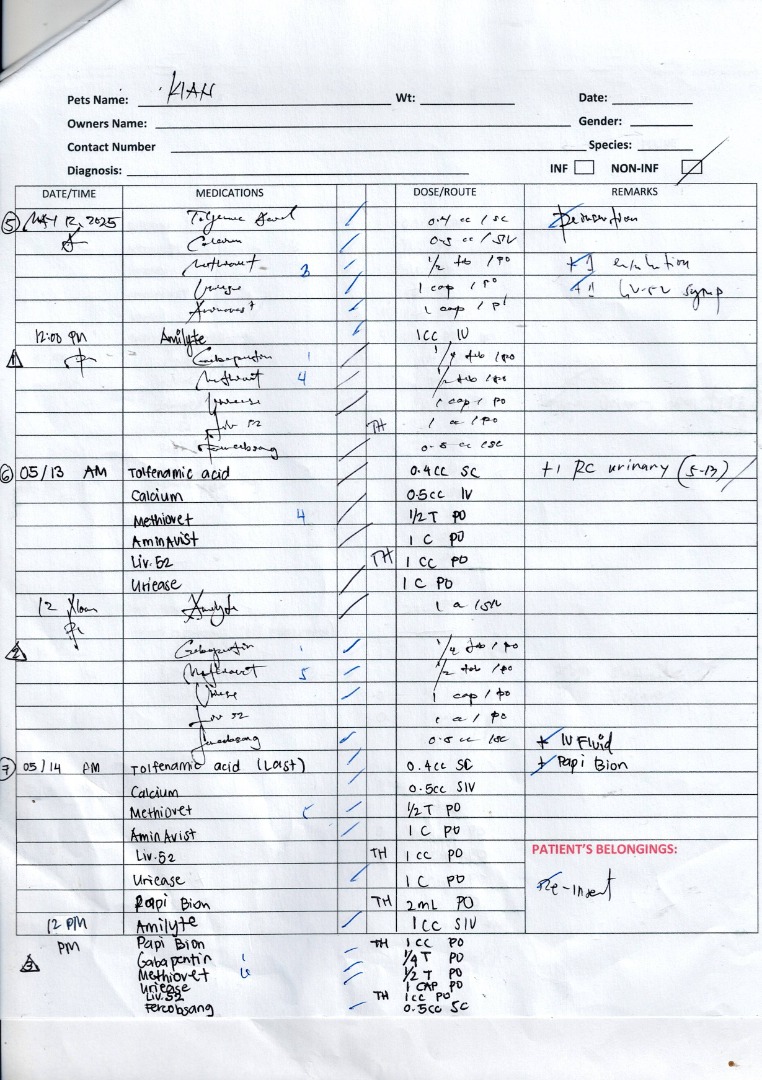 Pets Name: KIAN Wt: Date:
Owners Name: Gender:
Contact Number Species:
Diagnosis: INF NON-INF
DATE/TIME MEDICATIONS DOSE/ROUTE REMARKS
5 MAY 12, 2025 0.4 cc / SC
0.5 cc / SIV
3 1/2 tab / PO
1 cap / PO Liv-52 syrup
1 cap / PO
12:00 PM Amilyte 1CC IV
1 Gabapentin 1 1/4 tab / PO
4 1/2 tab / PO
1 cap / PO
Liv 52 TH 1 cc / PO
0.5 cc / SC
6 05/13 AM Tolfenamic acid 0.4cc SC +1 RC urinary (5-13)
Calcium 0.5cc IV
Methiovet 4 1/2 T PO
AminAvist 1 C PO
Liv.52 TH 1 CC PO
Uricase 1 C PO
12 Amilyte 1 cc / SIV
2 Gabapentin 1 1/4 tab / PO
Methiovet 5 1/2 tab / PO
1 cap / PO
Liv 52 1 cc / PO
0.5 cc / SC * IV Fluid
7 05/14 AM Tolfenamic acid (Last) 0.4cc SC + Papi Bion
Calcium 0.5cc SIV
Methiovet 5 1/2 T PO
AminAvist 1 C PO
Liv.52 TH 1 cc PO PATIENT'S BELONGINGS:
Uricase 1 C PO Re-Insert
Papi Bion TH 2mL PO
12 PM Amilyte 1CC SIV
PM Papi Bion TH 1 CC PO
3 Gabapentin 1 1/4 T PO
Methiovet 6 1/2 T PO
Uricase 1 CAP PO
Liv.52 TH 1cc PO
Fercobsang 0.5cc SC